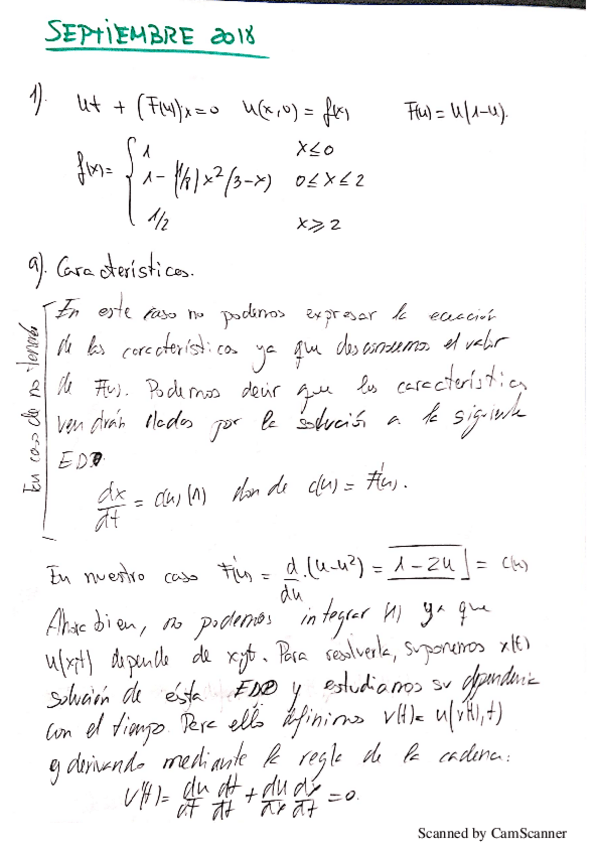 SEPTIEMBRE 2018
1). ut + (F(u))x = 0 u(x,0) = f(x) F(u) = u(1-u).
f(x) = { 1 x ≤ 0
1 - (1/8)x²(3-x) 0 ≤ x ≤ 2
1/2 x ≥ 2
a). Características.
En caso de no tenerla
En este caso no podemos expresar la ecuación
de las características ya que desconocemos el valor
de F(u). Podemos decir que las características
vendrán dadas por la solución a la siguiente
EDO
dx/dt = c(u) (1) donde c(u) = F'(u).
En nuestro caso F'(u) = d/du (u-u²) = 1-2u = c(u)
Ahora bien, no podemos integrar (1) ya que
u(x,t) depende de x y t. Para resolverla, suponemos x(t)
solución de ésta EDO y estudiamos su dependencia
con el tiempo. Para ello definimos v(t) = u(x(t),t)
y derivando mediante la regla de la cadena:
v'(t) = du/dt dt/dt + du/dx dx/dt = 0.
Scanned by CamScanner